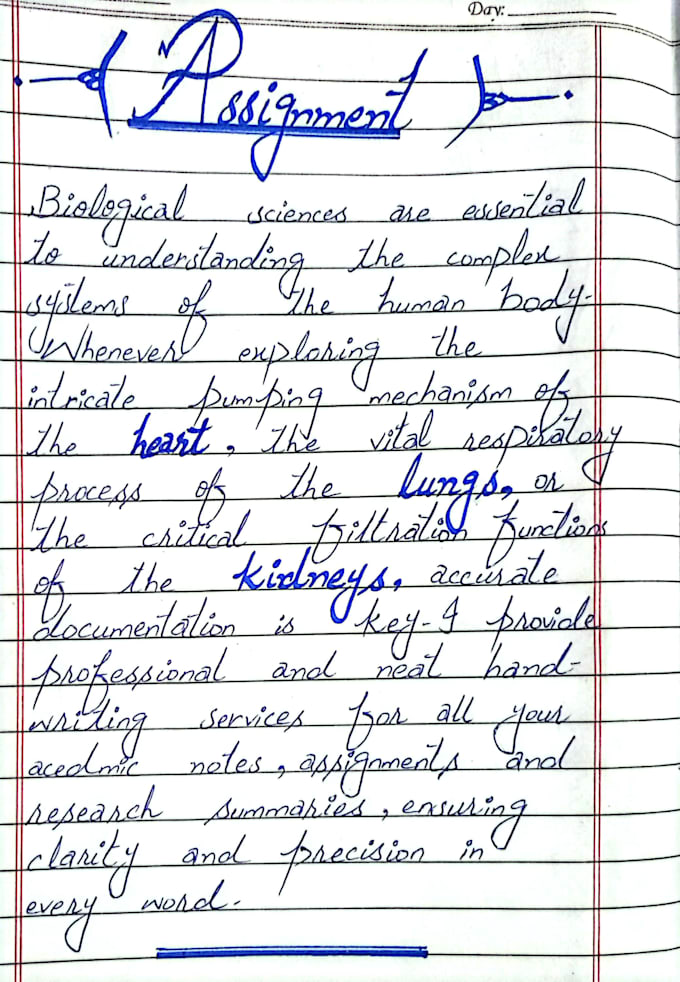 Day:
Assignment
Biological sciences are essential
to understanding the complex
systems of the human body.
Whenever exploring the
intricate pumping mechanism of
the heart, the vital respiratory
process of the lungs, or
the critical filtration functions
of the kidneys, accurate
documentation is key. I provide
professional and neat hand-
writing services for all your
acedmic notes, assignments and
research summaries, ensuring
clarity and precision in
every word.